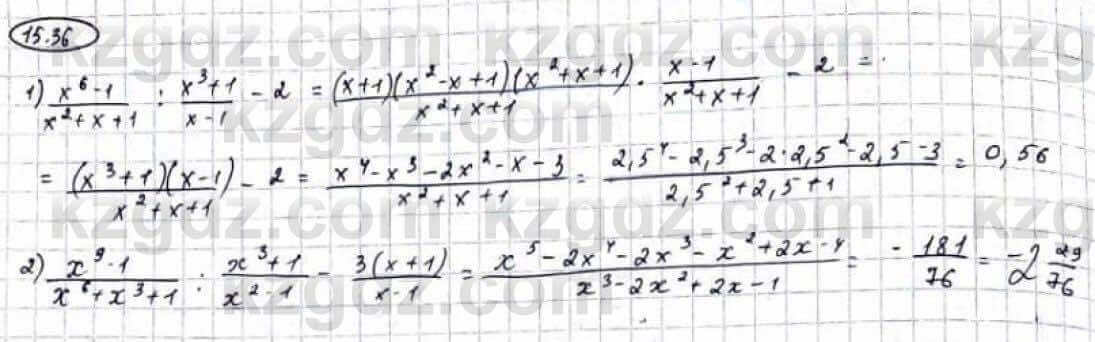 15.36
1) \frac{x^6-1}{x^2+x+1} : \frac{x^3+1}{x-1} - 2 = \frac{(x+1)(x^2-x+1)(x^2+x+1)}{x^2+x+1} \cdot \frac{x-1}{x^2+x+1} - 2 =
= \frac{(x^3+1)(x-1)}{x^2+x+1} - 2 = \frac{x^4-x^3-2x^2-x-3}{x^2+x+1} = \frac{2,5^4-2,5^3-2\cdot2,5^2-2,5-3}{2,5^2+2,5+1} = 0,56
2) \frac{x^9-1}{x^6+x^3+1} : \frac{x^3+1}{x^2-1} - \frac{3(x+1)}{x-1} = \frac{x^5-2x^4-2x^3-x^2+2x-4}{x^3-2x^2+2x-1} = -\frac{181}{76} = -2\frac{29}{76}
kzgdz.com